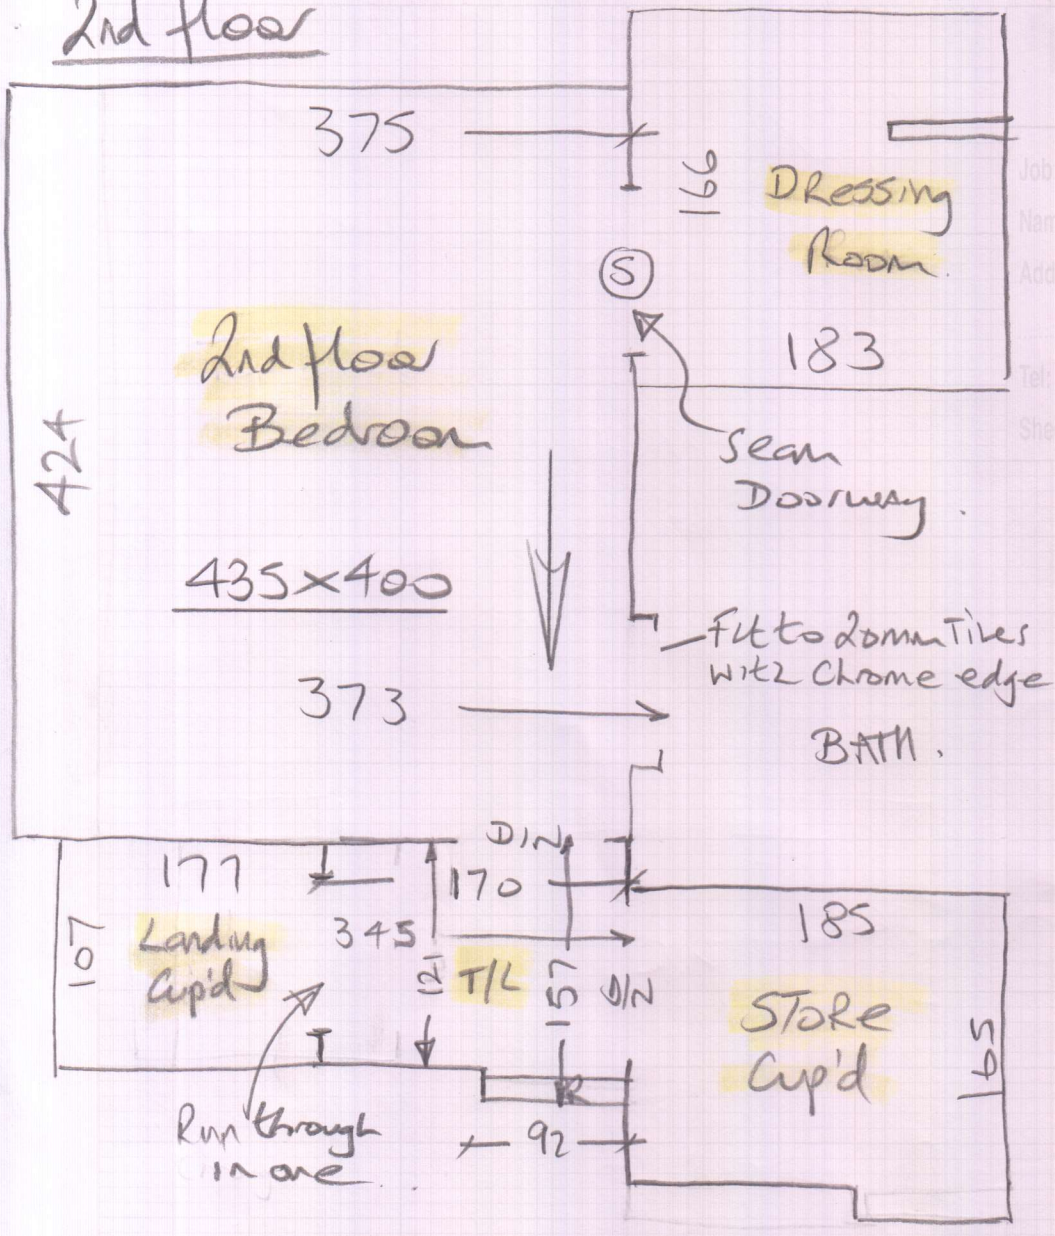 2nd floor
375
166
Dressing
Room
S
183
2nd floor
Bedroom
424
Seam
Doorway.
435x400
Fit to 20mm Tiles
with Chrome edge
373
BATH.
D/N
177
170
107
Landing
Cup'd
345
121
T/L
157
D/N
185
STORE
Cup'd
165
Run through
in one
92
Job
Nam
Add
Tel:
She